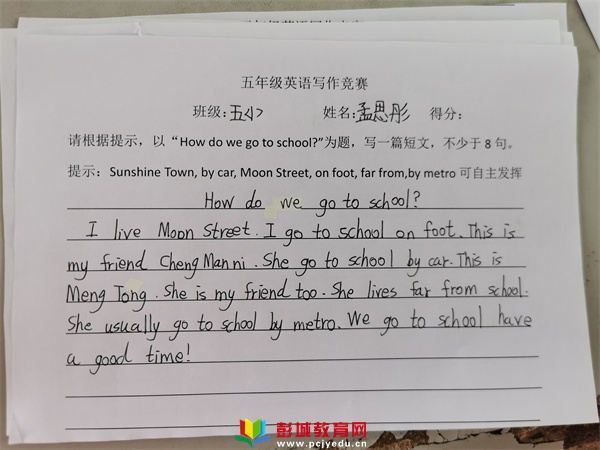 五年级英语写作竞赛
班级:五(6) 姓名:孟思彤 得分:
请根据提示，以“How do we go to school?”为题，写一篇短文，不少于8句。
提示：Sunshine Town, by car, Moon Street, on foot, far from,by metro 可自主发挥
How do we go to school?
I live Moon Street. I go to school on foot. This is
my friend Cheng Man ni. She go to school by car. This is
Meng Tong. She is my friend too. She lives far from school.
She usually go to school by metro. We go to school have
a good time!
彭城教育网
www.pcjyedu.cn